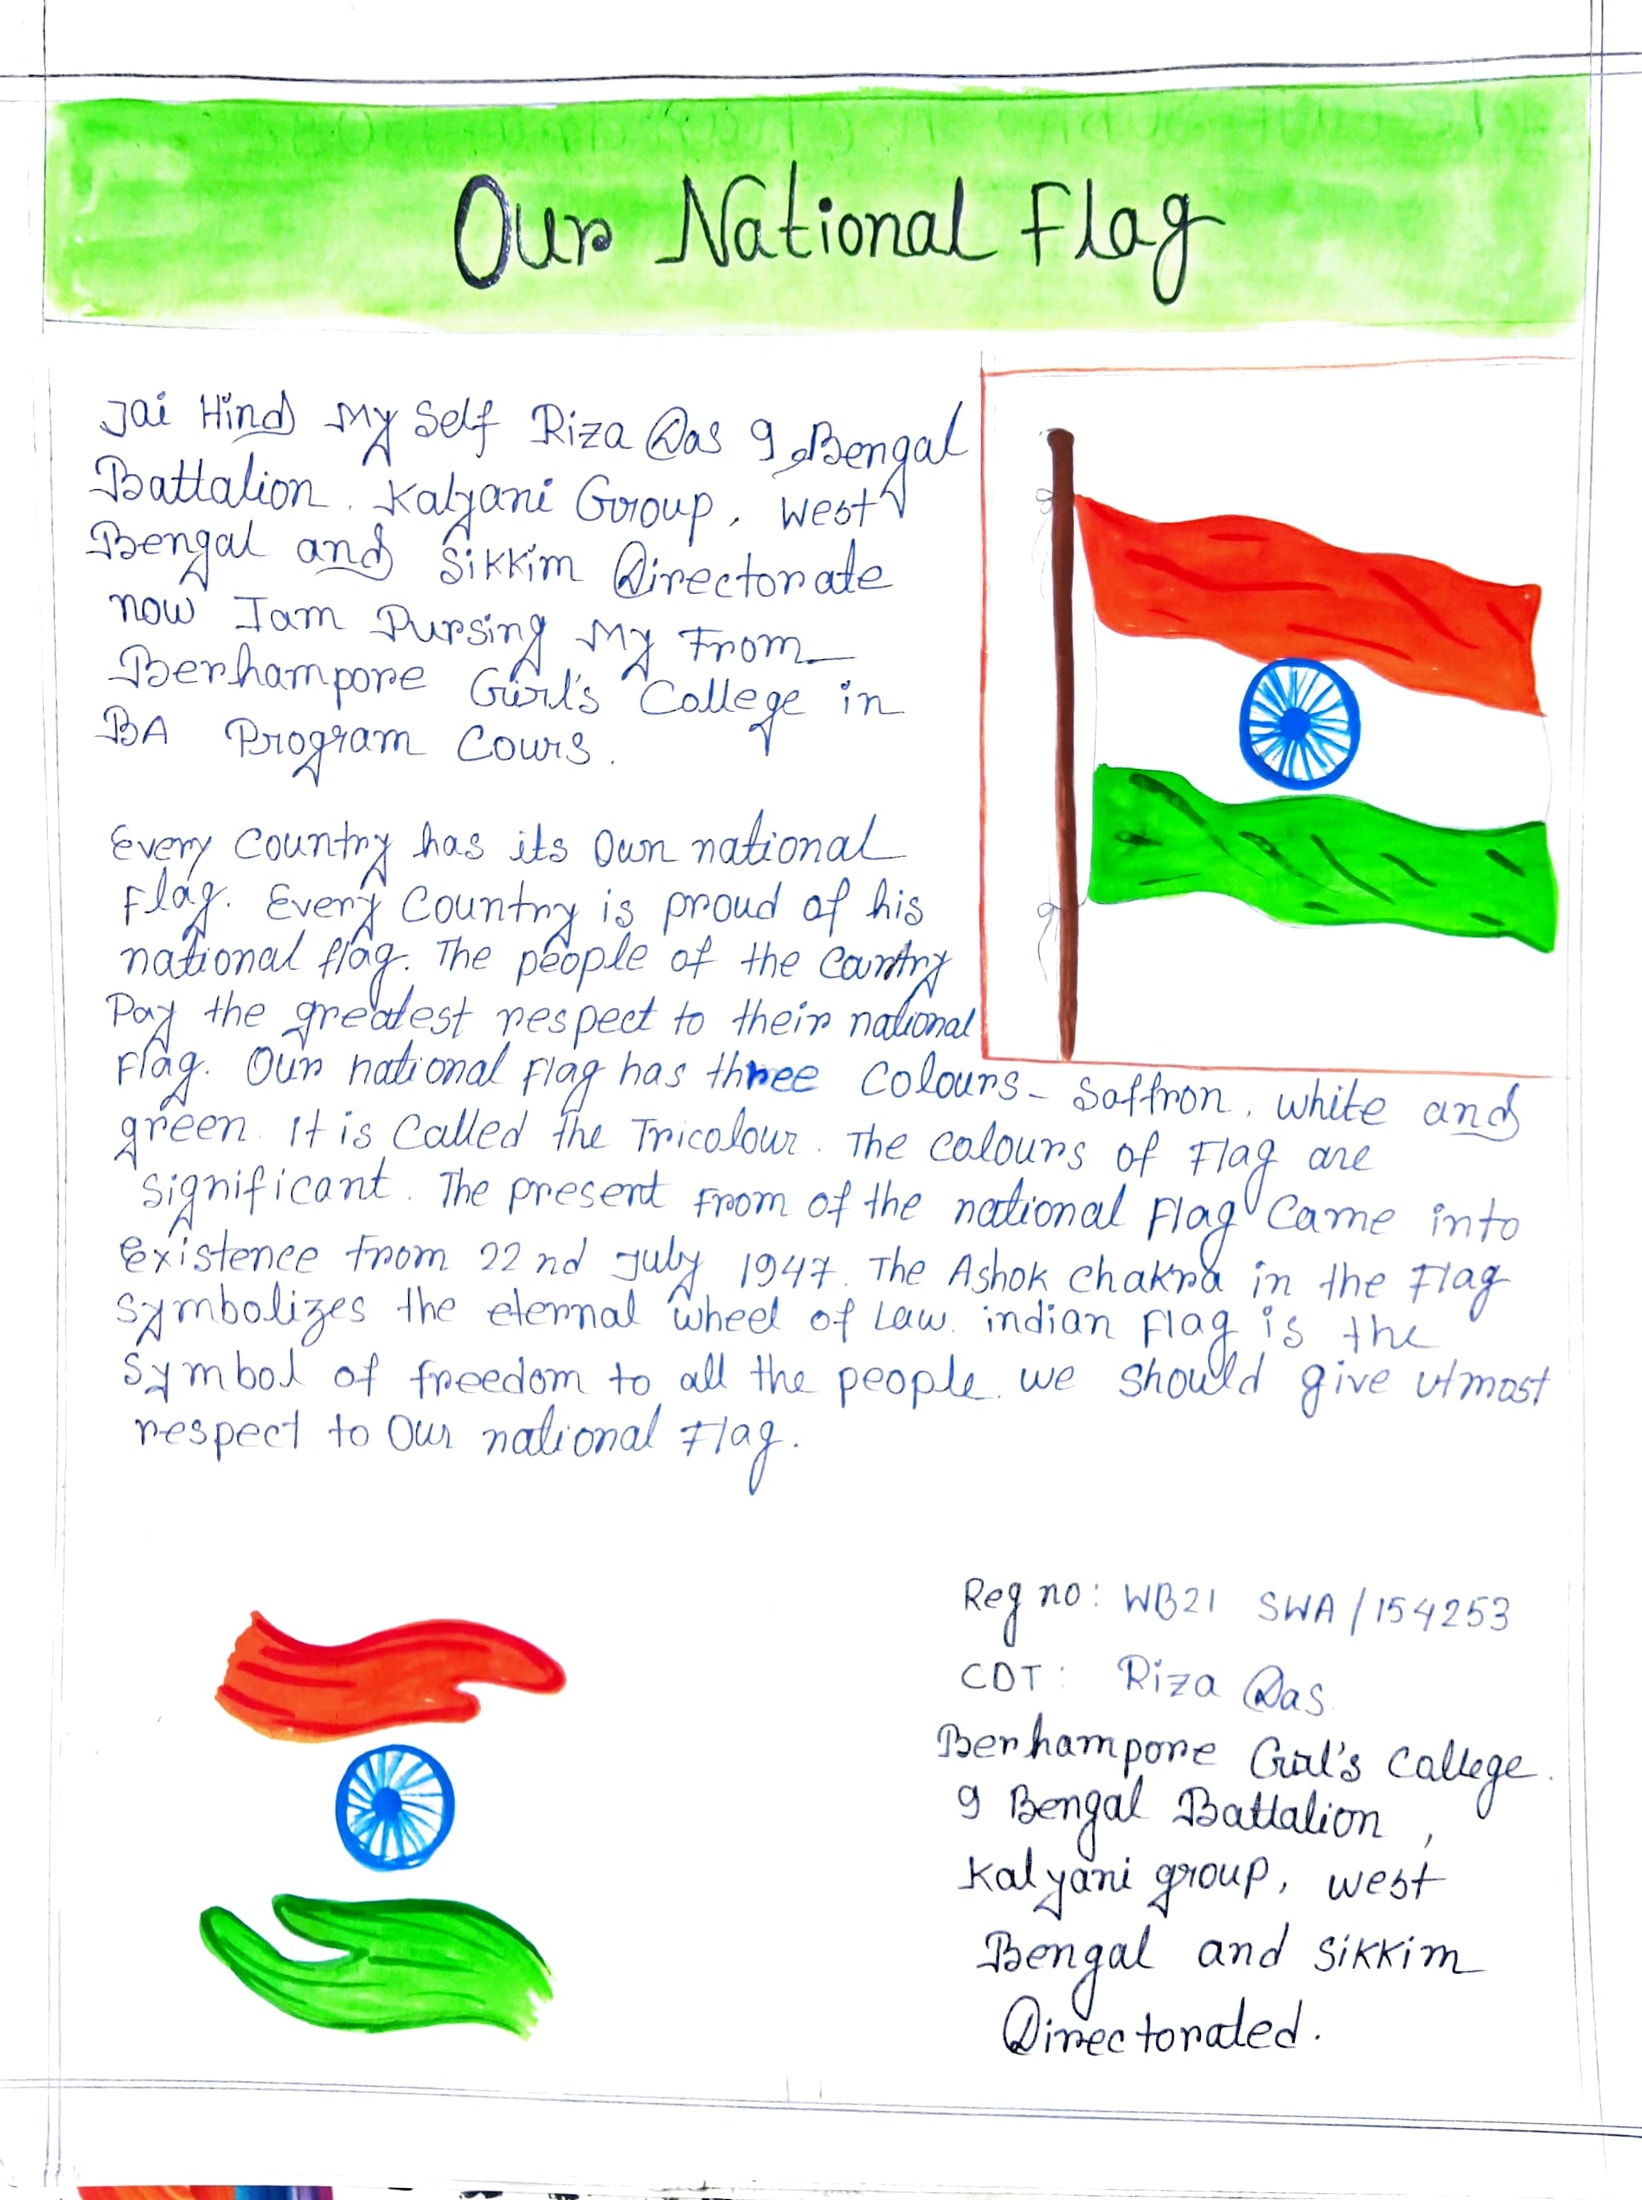 Our National Flag
Jai Hind My Self Riza Das 9 Bengal
Battalion, Kalyani Group, West
Bengal and Sikkim Directorate
now I am Pursing My From
Berhampore Girl's College in
BA Program Cours.
Every Country has its Own national
Flag. Every Country is proud of his
national flag. The people of the Country
Pay the greatest respect to their national
Flag. Our national Flag has three Colours - Saffron, white and
green. It is Called the Tricolour. The Colours of Flag are
significant. The present From of the national Flag Came into
Existence from 22nd July 1947. The Ashok Chakra in the Flag
Symbolizes the eternal wheel of Law. indian Flag is the
Symbol of freedom to all the people. we should give utmost
respect to Our national Flag.
Reg no: WB21 SWA/154253
CDT: Riza Das.
Berhampore Girl's College.
9 Bengal Battalion,
Kalyani group, west
Bengal and Sikkim
Directorated.